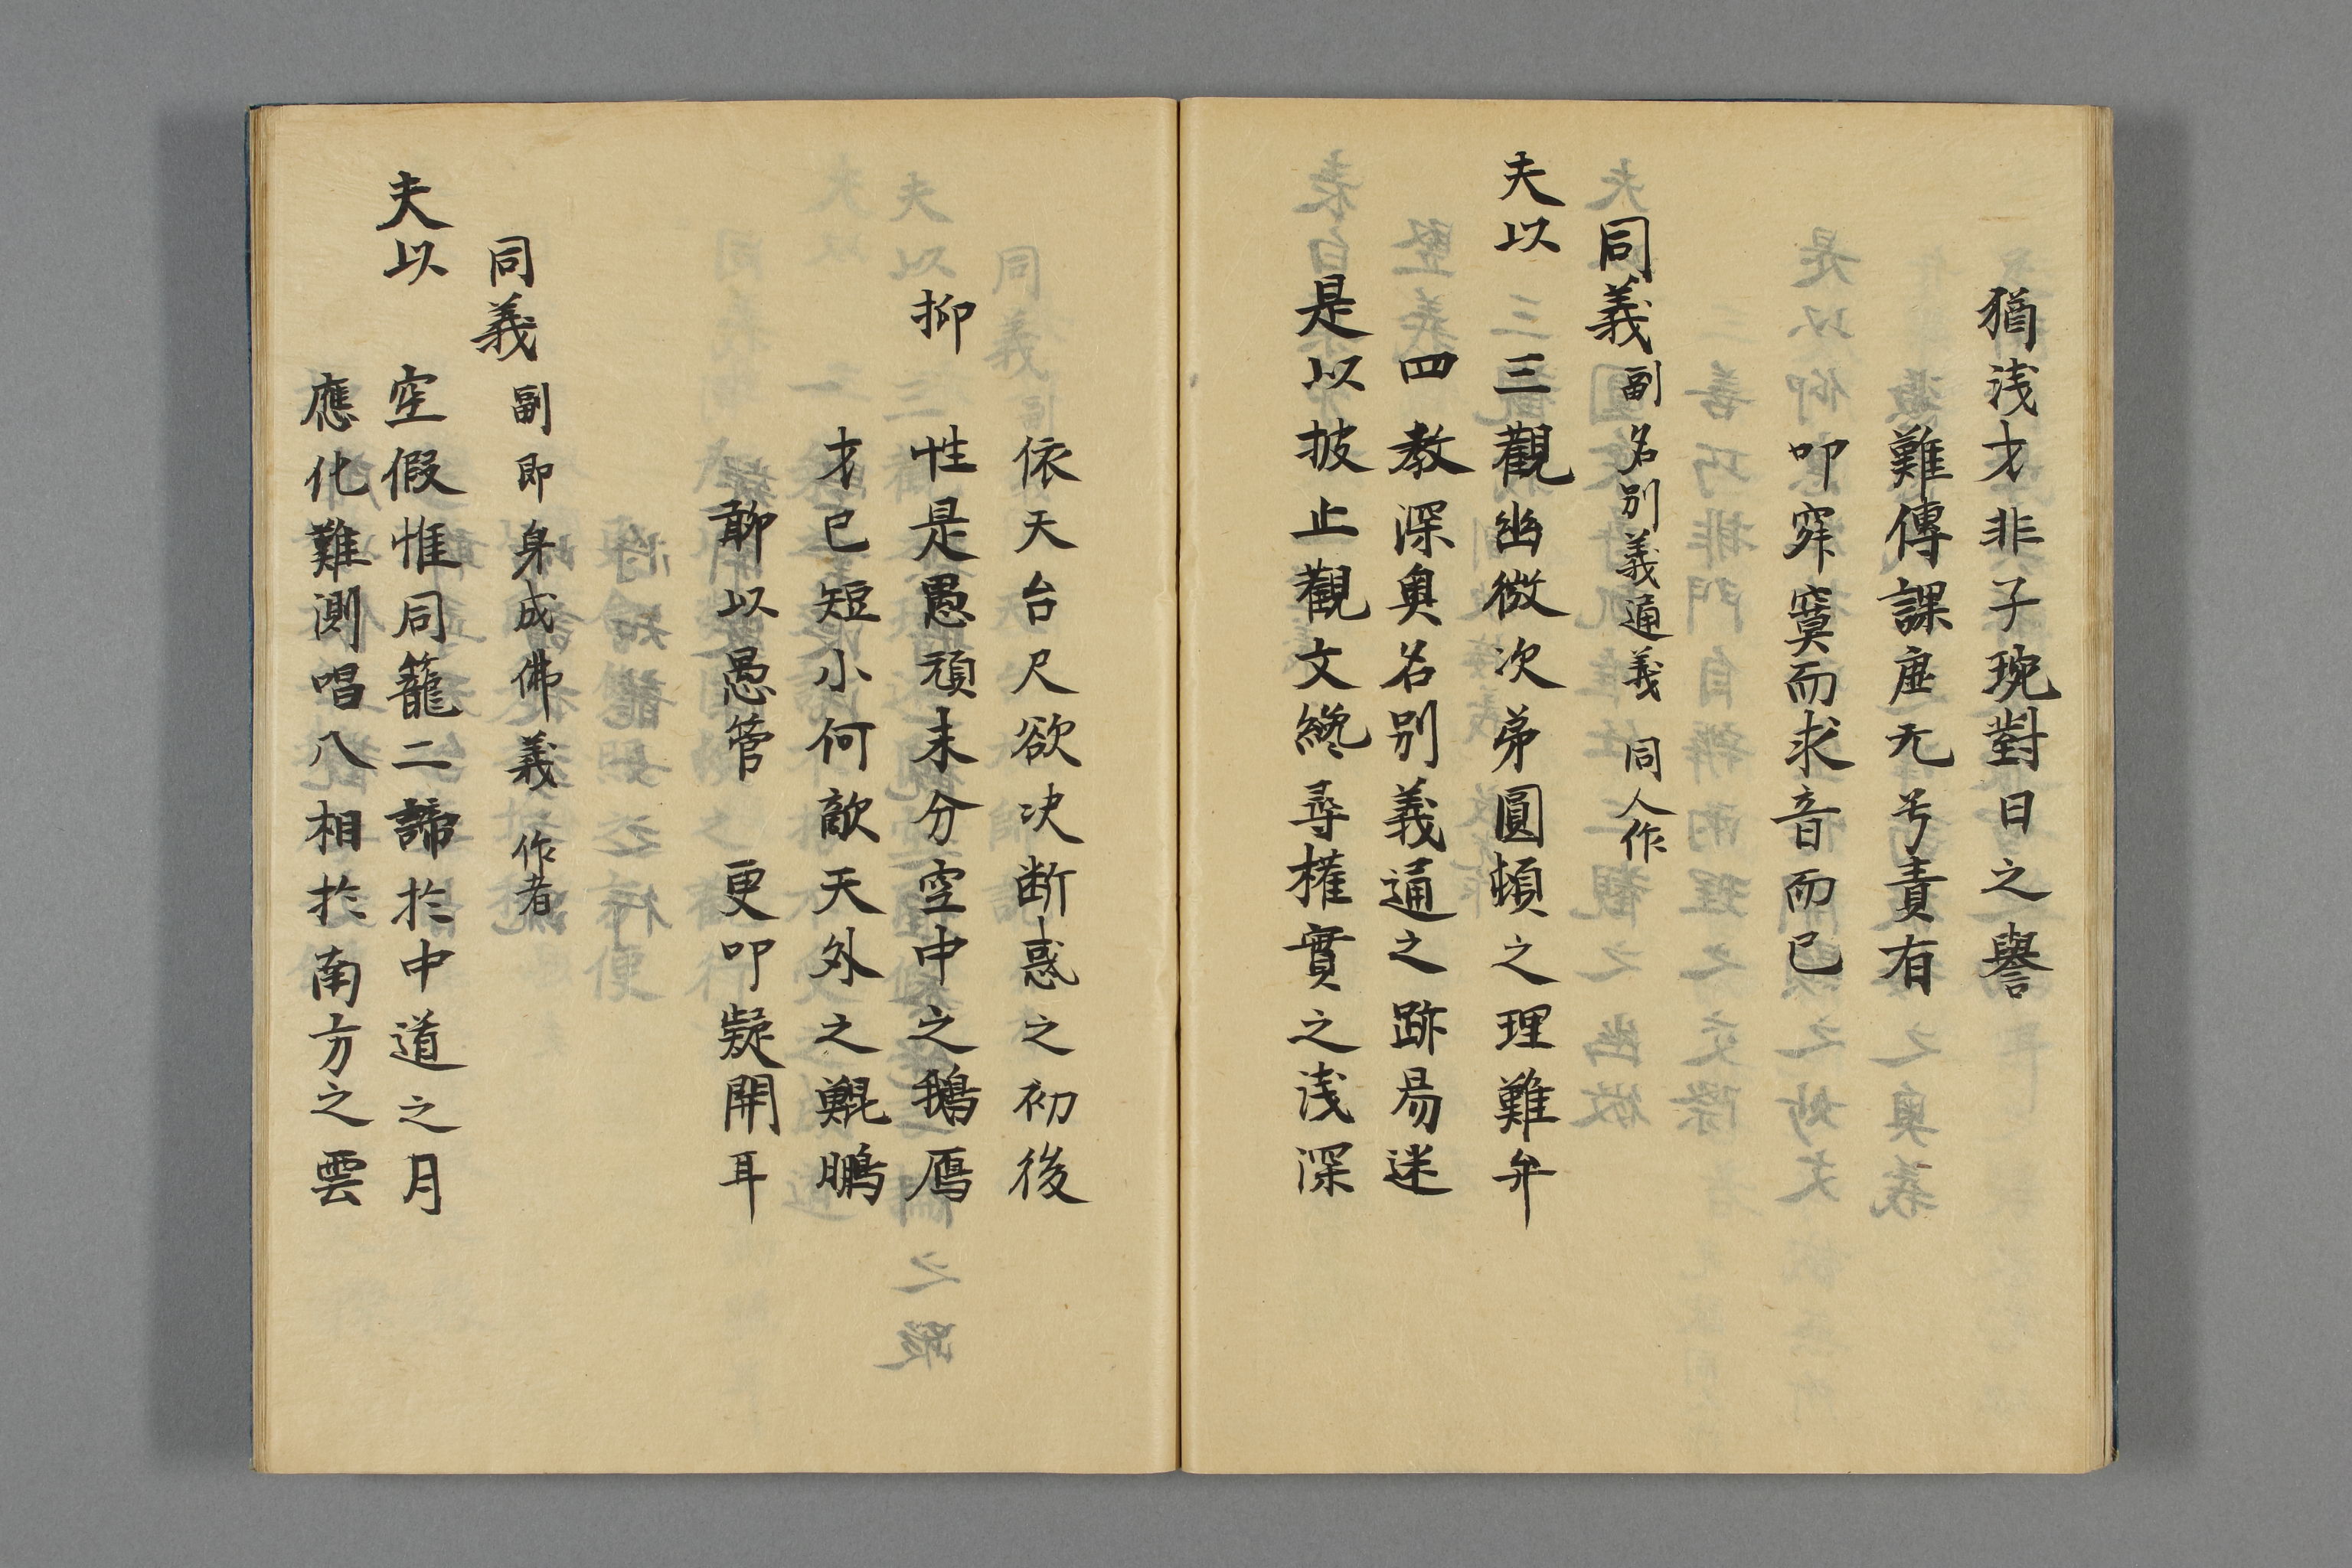 猶浅才非子琬對日之譽
難傳課虚无兮責有
叩窂寞而求音而已
同義副名別義通義 同人作
夫以 三觀幽微次弟圓頓之理難弁
四教深奥名別義通之跡易迷
是以披止觀文終尋權實之浅深
依天台尺欲决断惑之初後
抑 性是愚頑未分空中之鵝鴈
才已短小何敵天外之鯤鵬
聊以愚管 更叩疑開耳
同義副即身成佛義 作者
夫以 空假惟同籠二諦於中道之月
應化難測唱八相於南方之雲